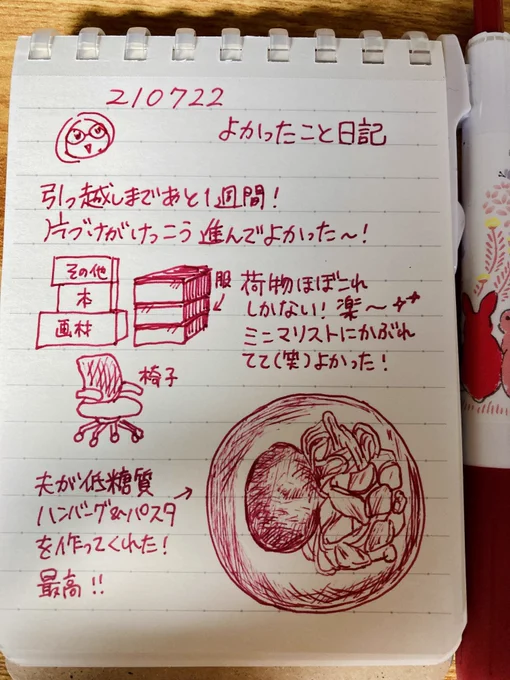 210722
よかったこと日記
引っ越しまであと1週間!
片づけがけっこう進んでよかった〜!
その他
本
画材
服
荷物ほぼこれ
しかない!楽〜
ミニマリストにかぶれ
てて(笑)よかった!
椅子
夫が低糖質
ハンバーグ&パスタ
を作ってくれた!
最高!!